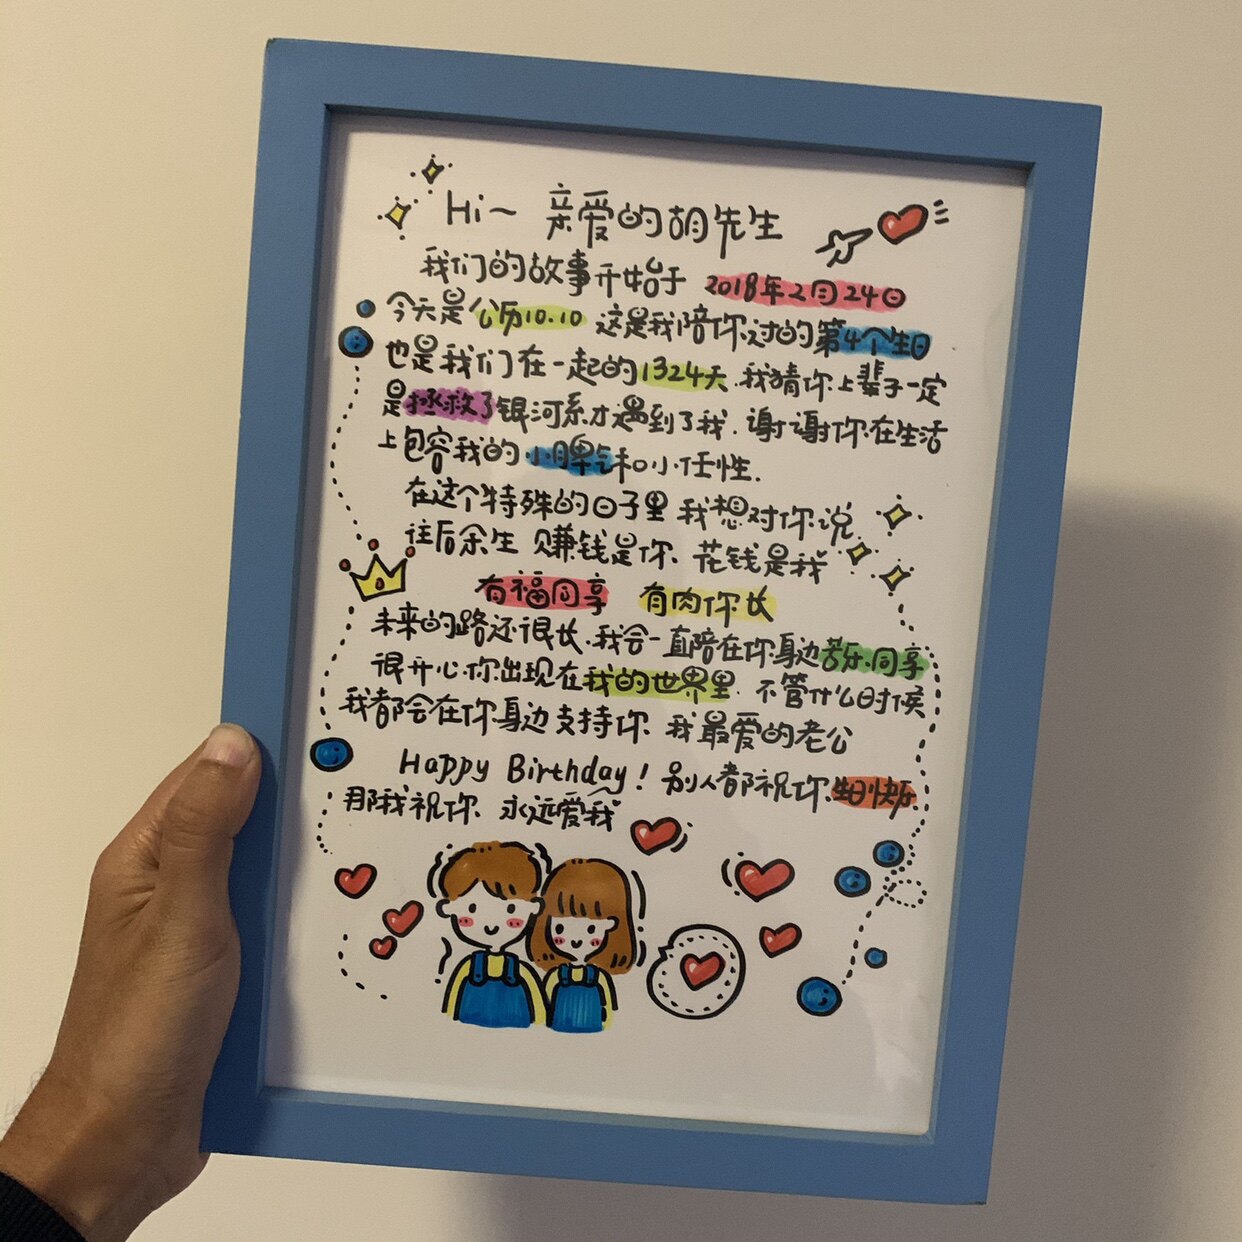 Hi~ 亲爱的胡先生
我们的故事开始于 2018年2月24日
今天是公历10.10 这是我陪你过的第4个生日
也是我们在一起的1324天.我猜你上辈子一定
是拯救了银河系才遇到了我.谢谢你在生活
上包容我的小脾气和小任性.
在这个特殊的日子里 我想对你说
往后余生 赚钱是你、花钱是我
有福同享 有肉你长
未来的路还很长.我会一直陪在你身边苦乐同享
很开心.你出现在我的世界里.不管什么时候
我都会在你身边支持你、我最爱的老公
Happy Birthday! 别人都祝你.生日快乐
那我祝你、永远爱我